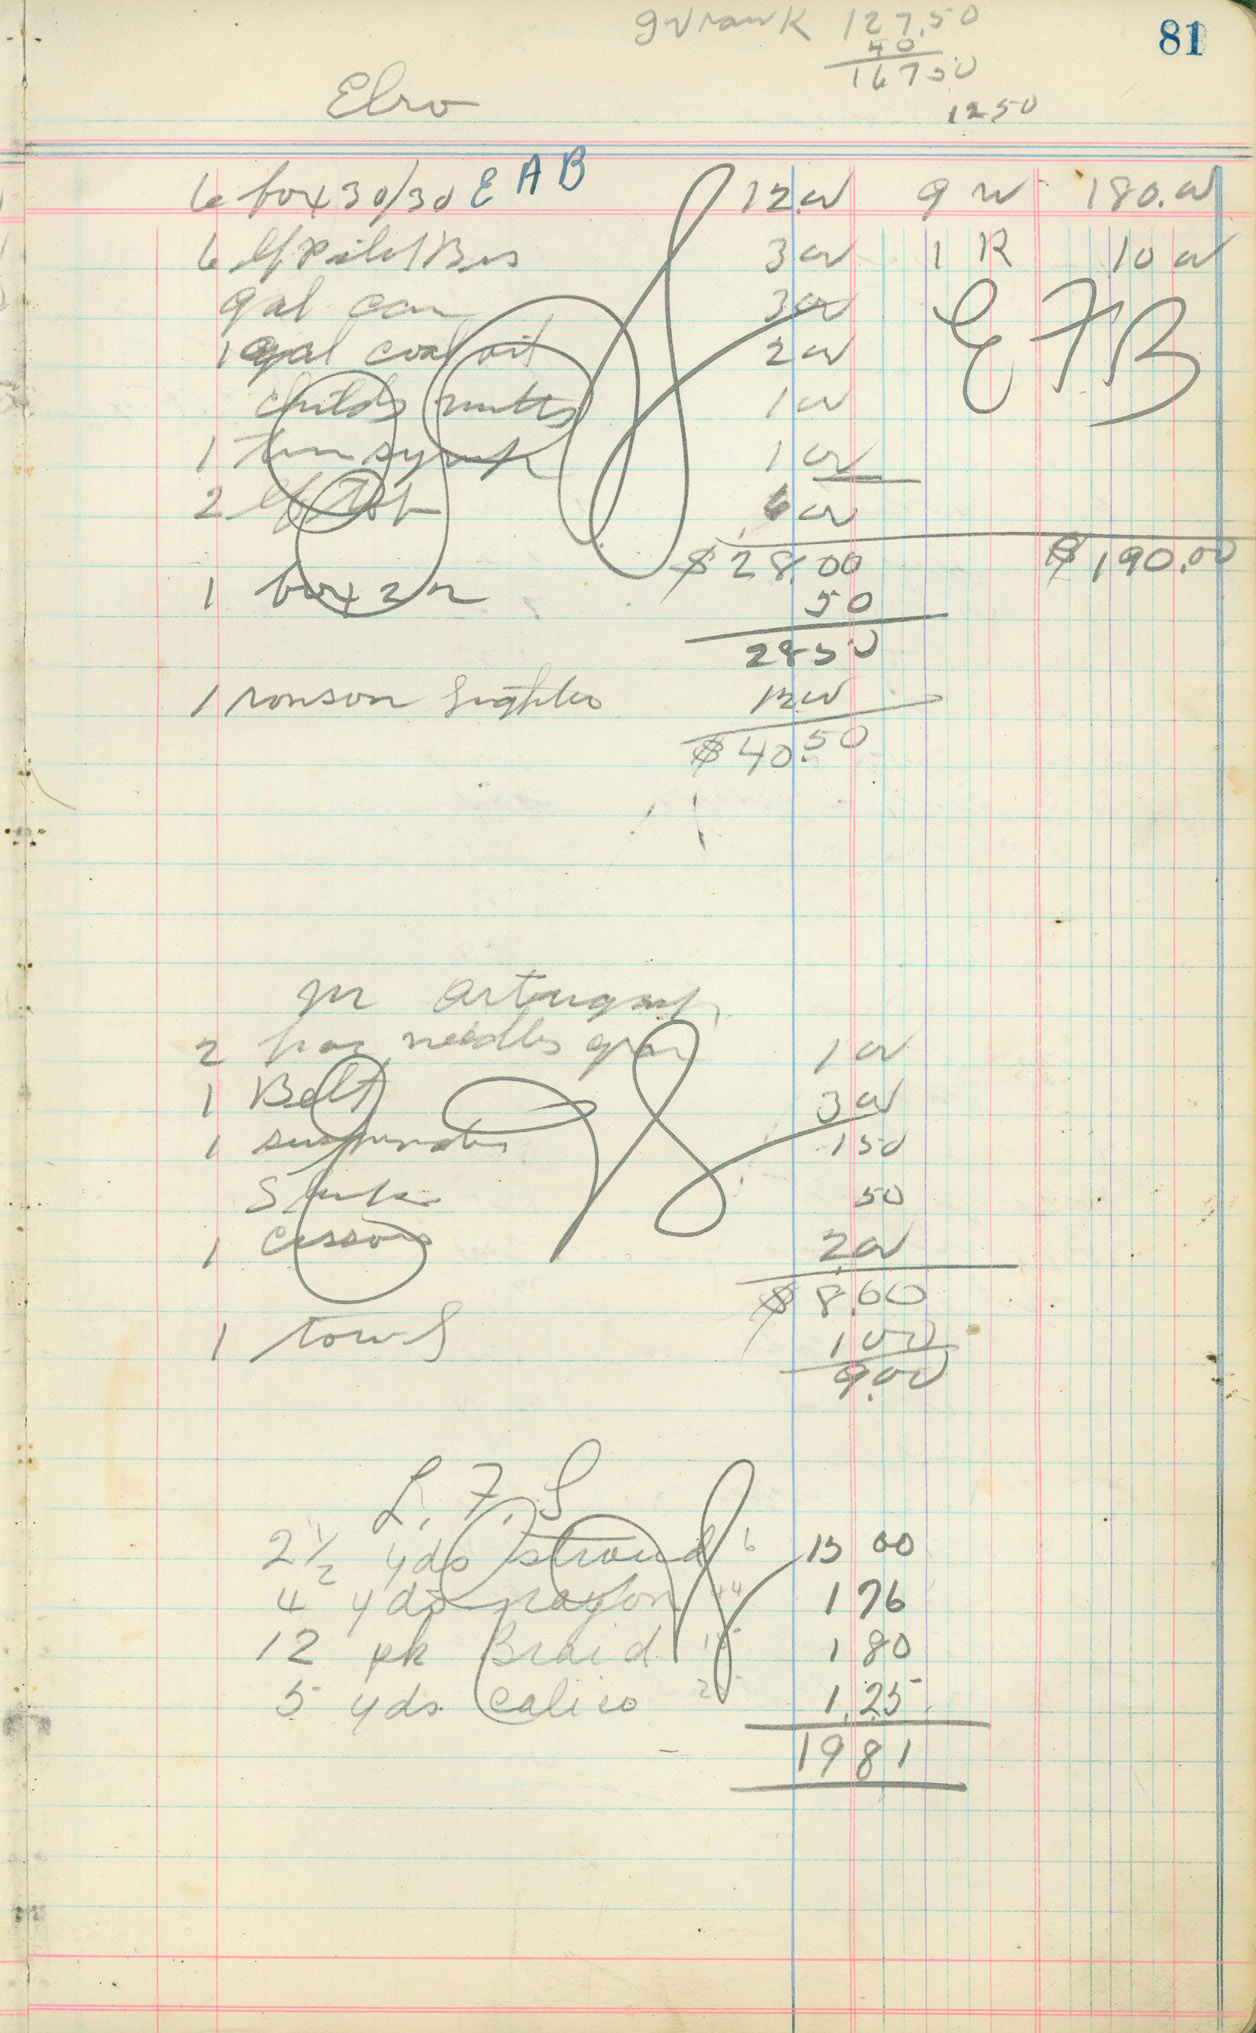 127.50
81
40
167 50
Elro
12 50
6 box 30/30 E A B 12.00 9 W 180.00
6 lf Pilot Bis 3 00 1 R 10 00
gal can 3 00 E F B
1 gal coal oil 2 00
childs mitts 1 00
1 tin syrup 1 00
2 lf Tob 6 00
$ 28.00 $ 190.00
1 box 22 50
28 50
1 ronson lighter 12.00
$ 40.50
2 needles 1 00
1 Belt 3 00
1 suspenders 1 50
50
1 cissors 2.00
$ 8.00
1 towel 1 00
9.00
L. F. S
2 1/2 yds stroud 6 15 00
4 yds rayon 44 1 76
12 pk Braid 15 1 80
5 yds calico 25 1.25
19 81